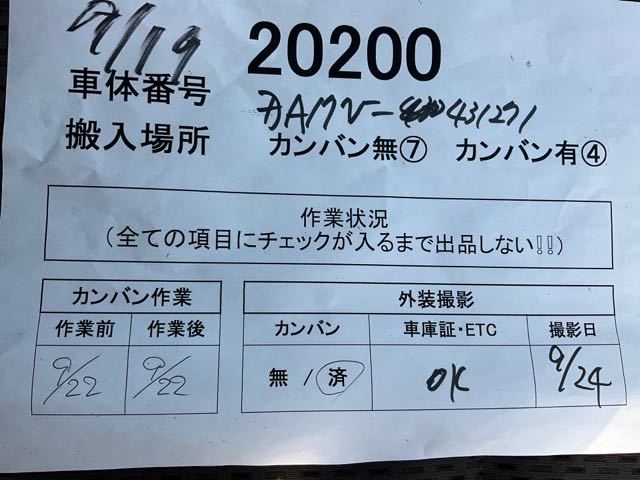 9/19
20200
車体番号
搬入場所 カンバン無⑦ カンバン有④
作業状況
(全ての項目にチェックが入るまで出品しない!!)
カンバン作業 外装撮影
作業前 作業後 カンバン 車庫証・ETC 撮影日
9/22 9/22 無 / 済 OK 9/24